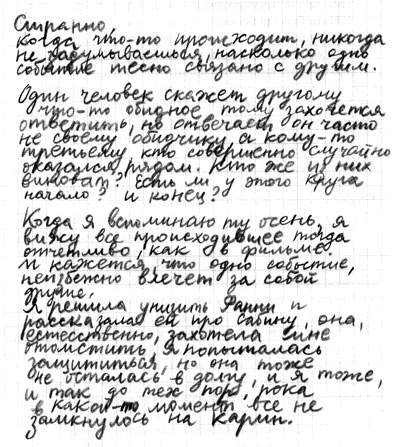 Странно,
когда что-то происходит, никогда
не задумываешься, насколько одно
событие тесно связано с другим.
Один человек скажет другому
что-то обидное тому захочется
ответить, но отвечает он часто
не своему обидчику а кому-то
третьему кто совершенно случайно
оказался рядом. Кто же из них
виноват? Есть ли у этого круга
начало? и конец?
Когда я вспоминаю ту осень, я
вижу все происходившее тогда
отчетливо, как в фильме.
и кажется, что одно событие,
неизбежно влечет за собой
другие.
Я решила унизить Фанни и
рассказала ей про Сабину, она,
естественно, захотела мне
отомстить, я попыталась
защититься, но она тоже
не осталась в долгу, и я тоже,
и так до тех пор, пока
в какой-то момент все не
замкнулось на Карин.